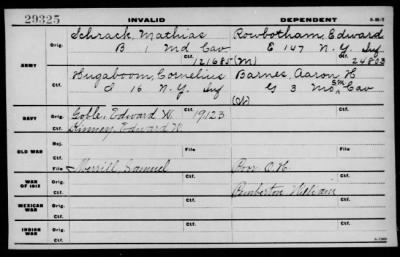 29325 INVALID DEPENDENT 3-89-7
Orig. Schrack, Mathias Rowbotham, Edward
B 1 Md Cav E 147 N.Y. Inf
ARMY Ctf. 121685 (M) 24823
Orig. Hugaboom, Cornelius Barnes, Aaron H
I 16 N.Y. Inf G 3 Mo SM Cav
Ctf.
NAVY Orig. Goble, Edward W. 19123
Ctf. Edward W.
OLD WAR Rej.
File File
WAR OF 1812 Orig. Merrill, Samuel Poor O.H.
Ctf. Pemberton William
MEXICAN WAR Orig.
Ctf. Ctf.
INDIAN WAR Orig.
Ctf. Ctf.